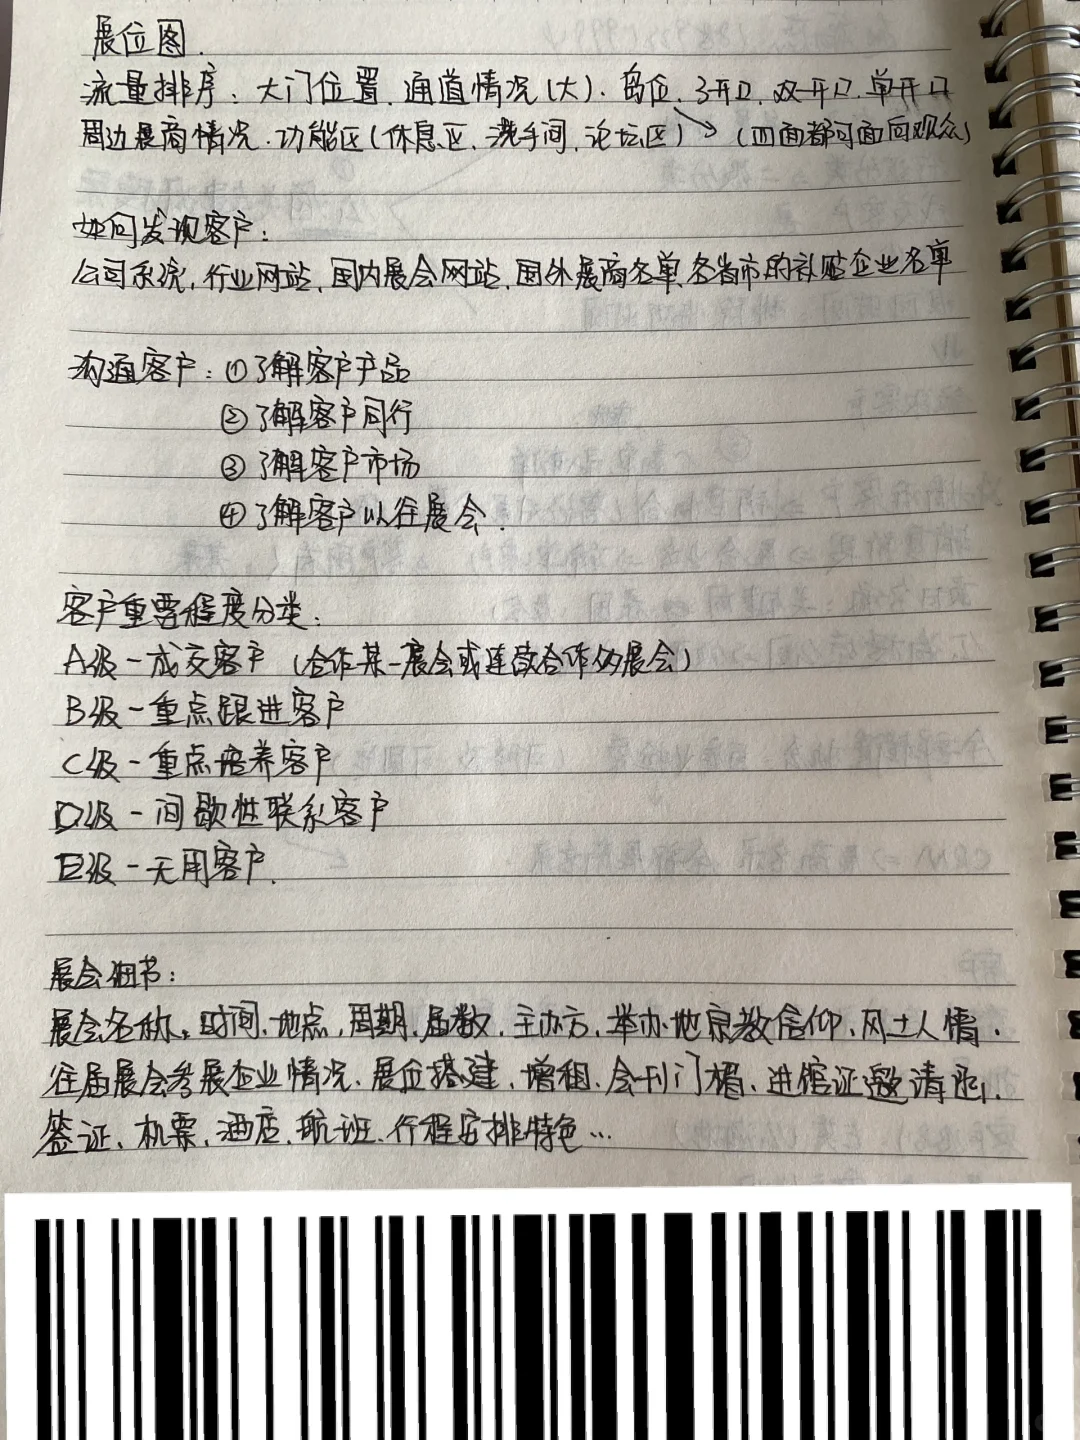 展位图.
流量排序：大门位置、通道情况(大)、岛位、3开口、双开口、单开口
周边展商情况、功能区(休息区、洗手间、论坛区) → (四面都可面向观众)
如何发现客户：
公司系统, 行业网站、国内展会网站、国外展商名单、各省市的补贴企业名单
沟通客户：①了解客户产品
②了解客户同行
③了解客户市场
④了解客户以往展会.
客户重要程度分类：
A级－成交客户 (合作某一展会或连续合作的展会)
B级－重点跟进客户
C级－重点培养客户
D级－间歇性联系客户
E级－无用客户.
展会细节：
展会名称、时间、地点、周期、届数、主办方、举办地宗教信仰、风土人情、
往届展会参展企业情况、展位搭建、增租、会刊门楣、进馆证邀请函、
签证、机票、酒店、航班、行程安排特色...